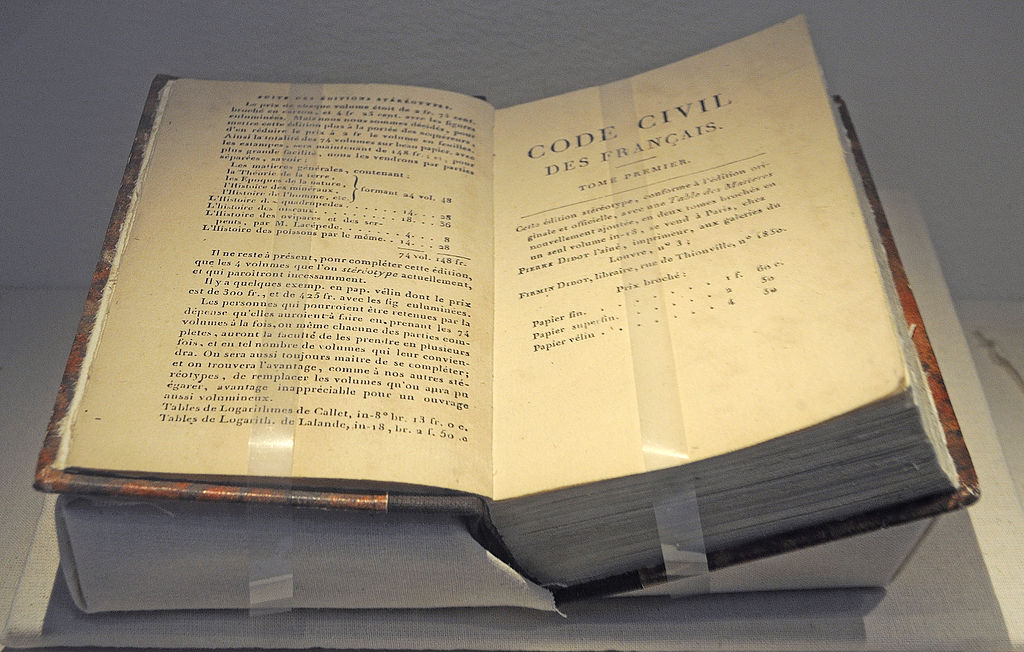 SUITE DES ÉDITIONS STÉRÉOTYPES.
Le prix de chaque volume étoit de 2 fr. 75 cent.
broché en carton, et 4 fr 25 cent. avec les figures
enluminées. Mais nous nous sommes décidés, pour
mettre cette édition plus à la portée des acquéreurs,
d'en réduire le prix à 2 fr le volume en feuilles.
Ainsi la totalité des 74 volumes sur beau papier, avec
les estampes, sera maintenant de 148 fr.; et, pour
plus grande facilité, nous les vendrons par parties
séparées, savoir:
Les matieres générales, contenant:
la Théorie de la terre,
les Epoques de la nature,
l'Histoire des minéraux,
l'Histoire de l'homme, etc.
formant 24 vol. 48
L'Histoire des quadrupedes . . . . . . . 14 . . . 28
L'Histoire des oiseaux. . . . . . . . 18. . . . 36
L'Histoire des ovipares et des ser-
pents, par M. Lacépede. . . . . . . . 4. . . . 8
L'Histoire des poissons par le même. . . 14. . . . 28
74 vol. 148 fr.
Il ne reste à présent, pour compléter cette édition,
que les 4 volumes que l'on stéréotype actuellement,
et qui paroîtront incessamment.
Il y a quelques exemp. en pap. vélin dont le prix
est de 300 fr., et de 425 fr. avec les fig enluminées.
Les personnes qui pourroient être retenues par la
dépense qu'elles auroient à faire en prenant les 74
volumes à la fois, ou même chacune des parties com-
pletes, auront la faculté de les prendre en plusieurs
fois, et en tel nombre de volumes qui leur convien-
dra. On sera aussi toujours maître de se compléter;
et on trouvera l'avantage, comme à nos autres sté-
réotypes, de remplacer les volumes qu'on aura pu
égarer, avantage inappréciable pour un ouvrage
aussi volumineux.
Tables de Logarithmes de Callet, in-8º br. 13 fr. 0 c.
Tables de Logarith. de Lalande, in-18, br. 2 f. 50 c
CODE CIVIL
DES FRANÇAIS.
TOME PREMIER.
Cette édition stéréotype, conforme à l'édition ori-
ginale et officielle, avec une Table des Matieres
nouvellement ajoutée, en deux tomes brochés en
un seul volume in-18, se vend à Paris, chez
PIERRE DIDOT l'aîné, imprimeur, aux galeries du
Louvre, nº 3;
FIRMIN DIDOT, libraire, rue de Thionville, nº 1850.
Prix broché:
Papier fin. . . . . . . 1 f. 60 c.
Papier superfin. . . . . . 2 50
Papier vélin . . . . . . 4 50